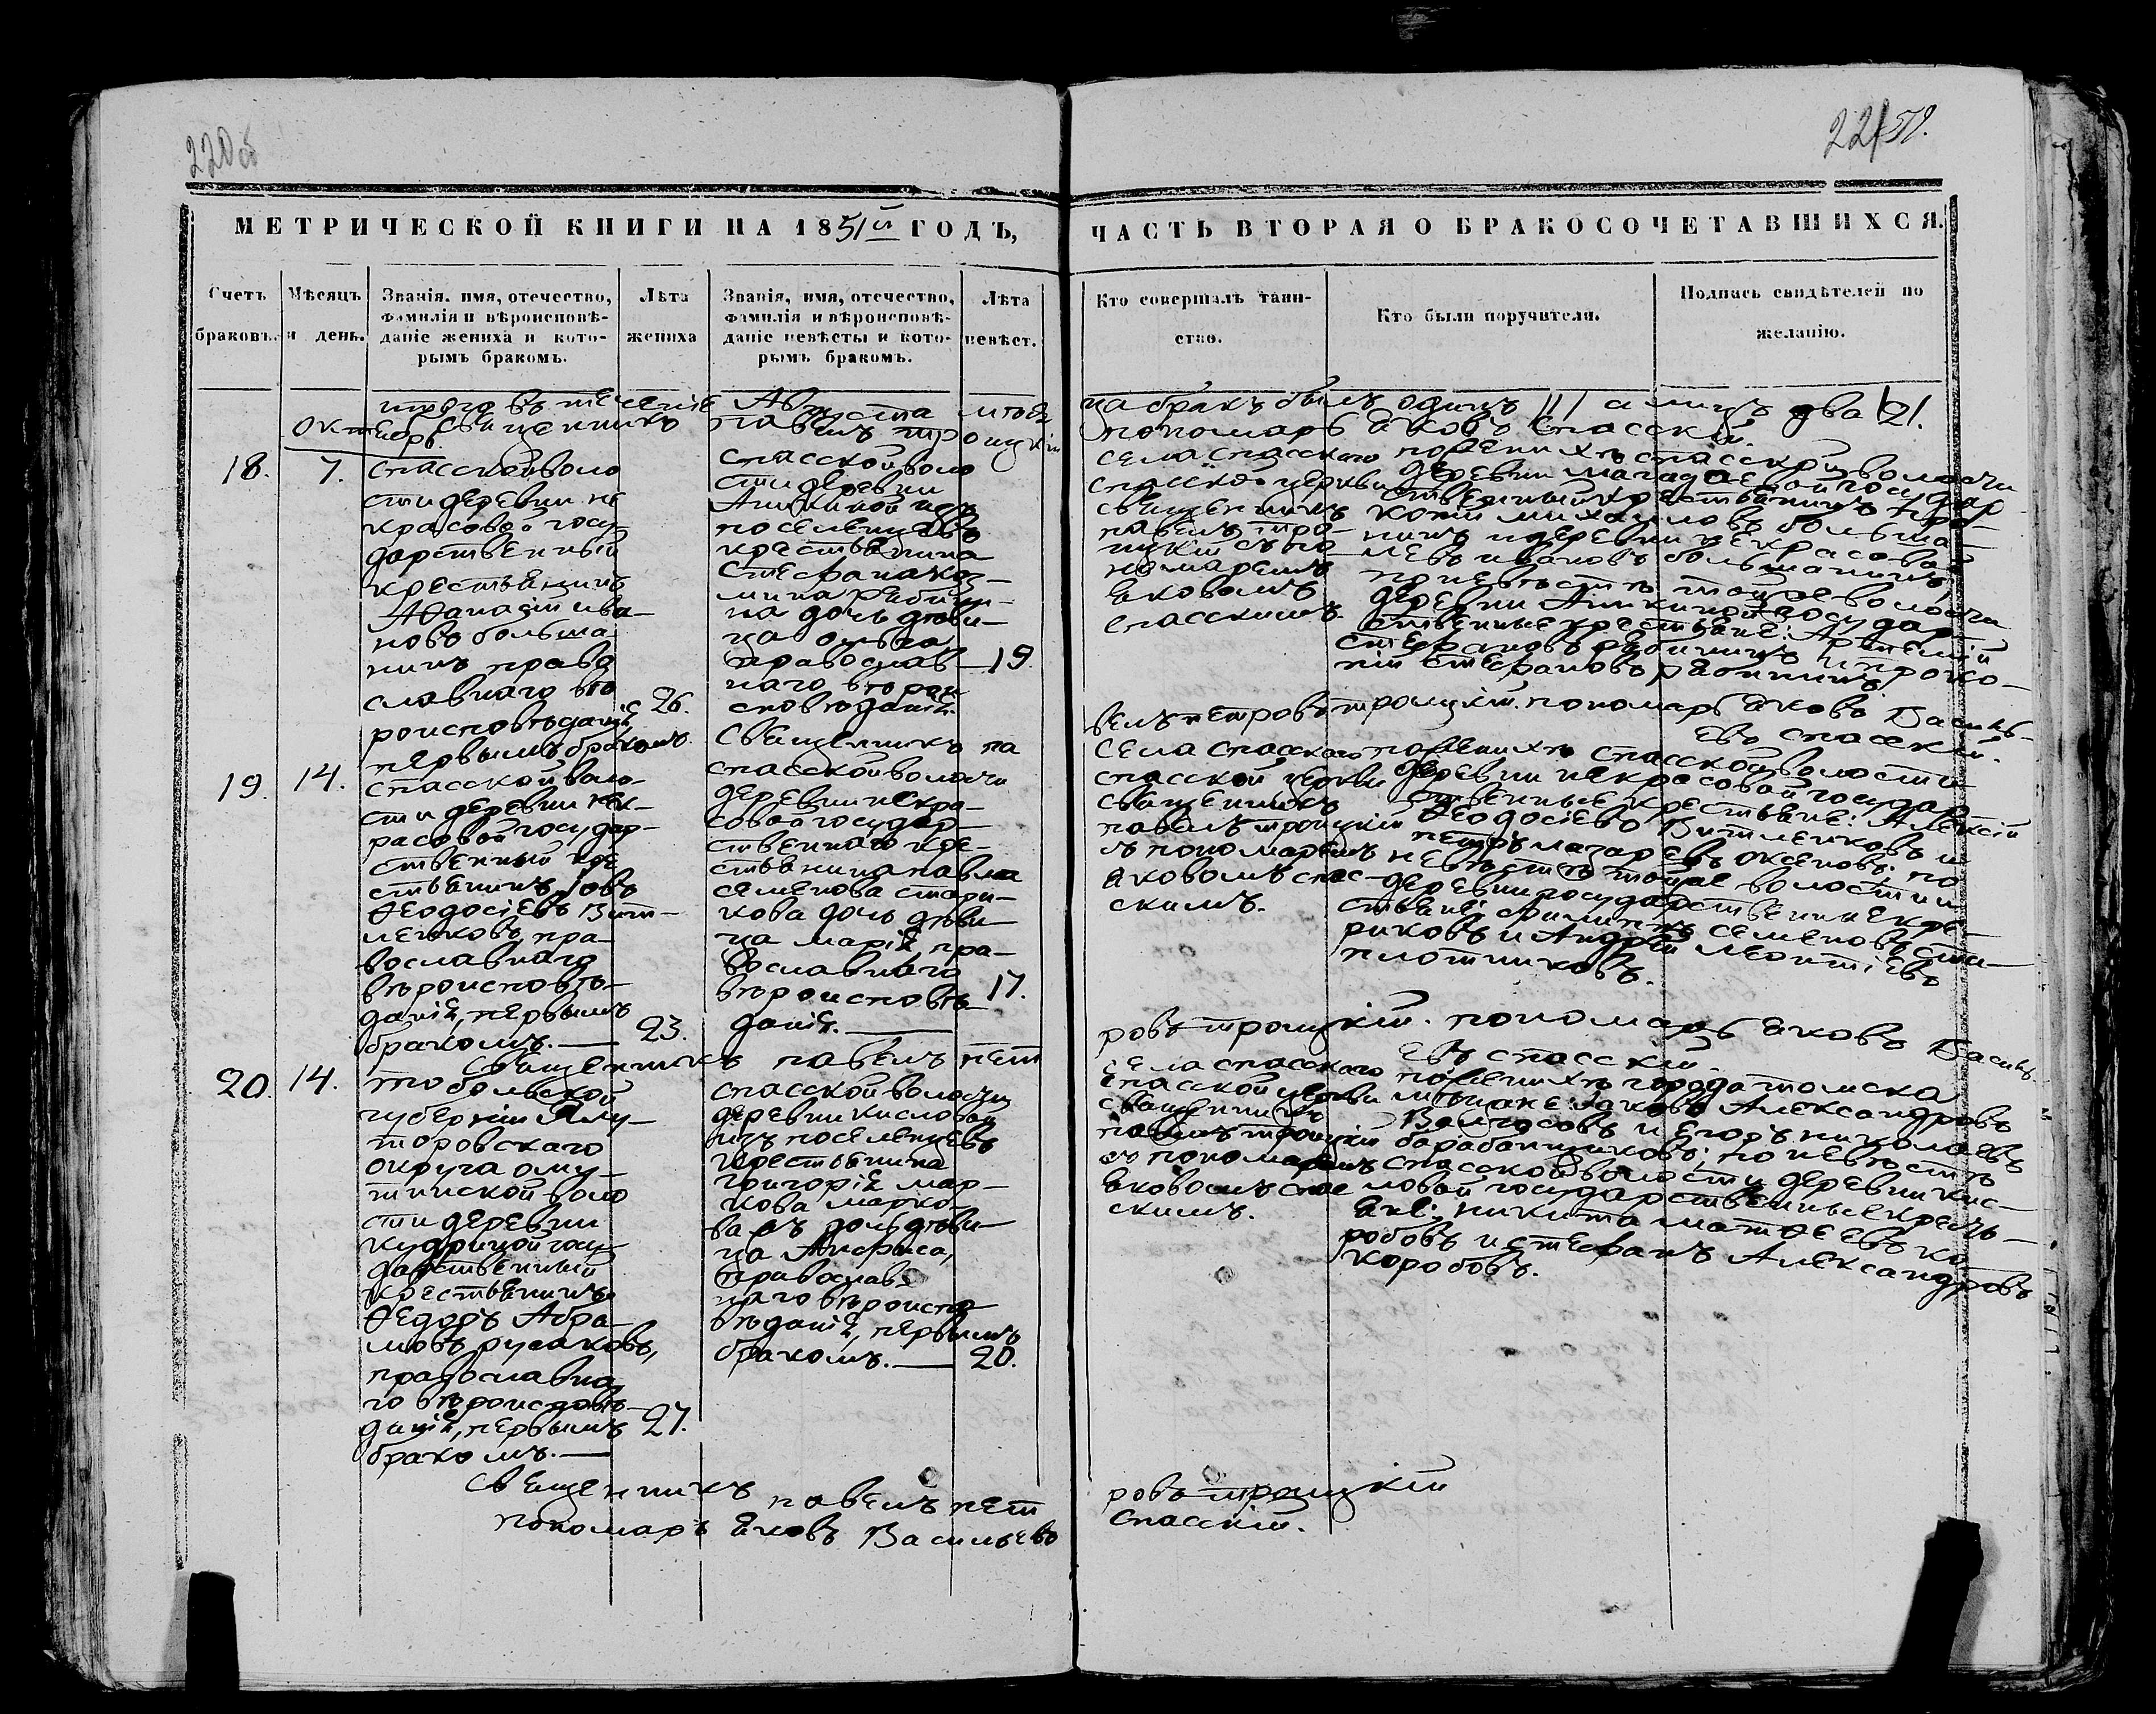 220об
221 51.
МЕТРИЧЕСКОЙ КНИГИ НА 1851й ГОДЪ,
ЧАСТЬ ВТОРАЯ О БРАКОСОЧЕТАВШИХСЯ.
Счетъ
браковъ.
Мѣсяцъ
и день.
Званія, имя, отечество,
фамилія и вѣроисповѣ-
даніе жениха и кото-
рымъ бракомъ.
Лѣта
жениха
Званія, имя, отечество,
фамилія и вѣроисповѣ-
даніе невѣсты и кото-
рымъ бракомъ.
Лѣта
невѣст.
Кто совершалъ таин-
ство.
Кто были поручители.
Подпись свидѣтелей по
желанію.
итого въ теченіе Августа
бракъ былъ одинъ /1/ а лицъ два /2/.
Священникъ Павелъ Троицкій
пономарь Яковъ Спасскій.
Октябрь
18.
7.
Спасской воло
сти деревни не
красовой госу-
дарственный
крестьянинъ
Афанасій ива-
новъ больша
нинъ право
славнаго вѣ
роисповѣданія
первымъ бракомъ
26.
Спасской воло
сти деревни
Аникиной изъ
поселенцевъ
крестьянина
Стефана коз-
мина Рябини-
на дочь дѣви-
ца ольга
православ-
наго вѣроис
повѣданія.
19.
села спасскаго
спасской церкви
священникъ
павелъ трои-
цкій съ по-
номаремъ
яковомъ
спасскимъ.
по женихѣ спасской волости
деревни магадаевой государ
ственный крестьянинъ про-
копій михайловъ больша-
нинъ и деревни некрасовой
левъ ивановъ большанинъ,
по невѣстѣ той же волости
деревни Аникиной государ
ственные крестьяне: Артемій
стефановъ рябининъ и проко-
пій стефановъ рябининъ
Священникъ па
велъ петровъ троицкій. пономарь яковъ Василь-
евъ спасскій.
19.
14.
Спасской воло-
сти деревни нек-
расовой государ-
ственный кре
стьянинъ Іовъ
Феодосіевъ Вит-
ленковъ, пра-
вославнаго
вѣроисповѣ-
данія, первымъ
бракомъ.
23.
спасской волости
деревни некра-
совой государ-
ственнаго кре-
стьянина павла
семенова стари-
кова дочь дѣви
ца марія, пра-
вославнаго
вѣроисповѣ-
данія.
17.
села спасскаго
спасской церкви
священникъ
павелъ троицкій
съ пономаремъ
яковомъ спас-
скимъ.
по женихѣ спасской волости
деревни некрасовой государ
ственные крестьяне: Алексій
Феодосіевъ Витленковъ и
петръ лазаревъ оксеновъ. по
невѣстѣ той же волости и
деревни государственные кре-
стьяне филиппъ семеновъ ста-
риковъ и Андрей леонтіевъ
плотниковъ.
Священникъ павелъ пет
ровъ троицкій. пономарь яковъ Василь-
евъ спасскій.
20.
14.
тобольской
губерніи Ялу-
торовскаго
округа ому-
тинской воло
сти деревни
кудриной госу
дарственный
крестьянинъ
Федоръ Абра-
мовъ русаковъ,
православна
го вѣроисповѣ-
данія, первымъ
бракомъ.
27.
спасской волости
деревни кисловой
изъ поселенцевъ
крестьянина
григорія мар-
кова марко-
ва дочь дѣви-
ца Анфиса,
православ-
наго вѣроиспо
вѣданія, первымъ
бракомъ.
20.
села спасскаго
спасской церкви
священникъ
павелъ троицкій
съ пономаремъ
яковомъ спас
скимъ.
по женихѣ города томска
мѣщане: яковъ Александровъ
и Егоръ николаевъ
барабанщиковъ, по невѣстѣ
спасской волости деревни кис-
ловой государственные кресть-
яне: никита матфеевъ ко
робовъ и стефанъ Александровъ
коробовъ.
Священникъ павелъ пет
ровъ троицкій
пономарь яковъ Васильевъ
спасскій.